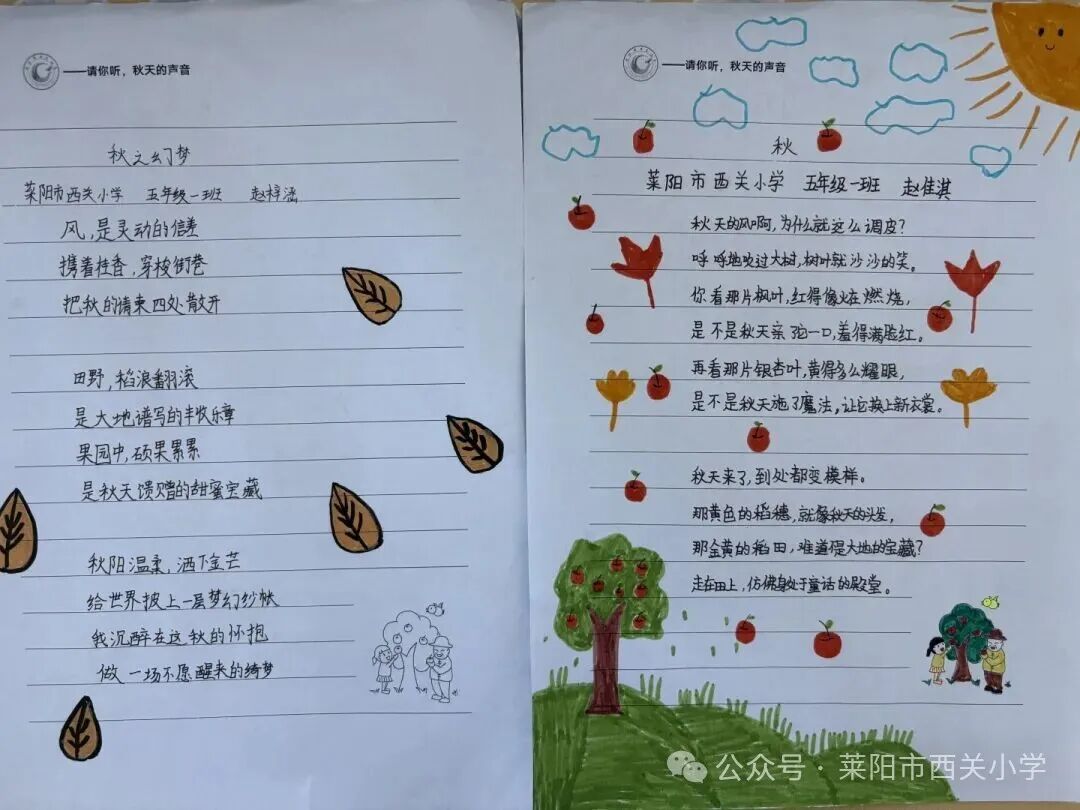 ——请你听，秋天的声音
秋之幻梦
莱阳市西关小学 五年级一班 赵梓涵
风，是灵动的信差
携着桂香，穿梭街巷
把秋的请柬四处散开
田野，稻浪翻滚
是大地谱写的丰收乐章
果园中，硕果累累
是秋天馈赠的甜蜜宝藏
秋阳温柔，洒下金芒
给世界披上一层梦幻纱帐
我沉醉在这秋的怀抱
做一场不愿醒来的绮梦
——请你听，秋天的声音
秋
莱阳市西关小学 五年级一班 赵佳淇
秋天的风啊，为什么就这么调皮？
呼呼地吹过大树，树叶就沙沙的笑。
你看那片枫叶，红得像火在燃烧，
是不是秋天亲了它一口，羞得满脸红。
再看那片银杏叶，黄得多么耀眼，
是不是秋天施了魔法，让它换上新衣裳。
秋天来了，到处都变模样。
那黄色的稻穗，就像秋天的头发，
那金黄的稻田，难道是大地的宝藏？
走在田上，仿佛身处于童话的殿堂。
公众号·莱阳市西关小学